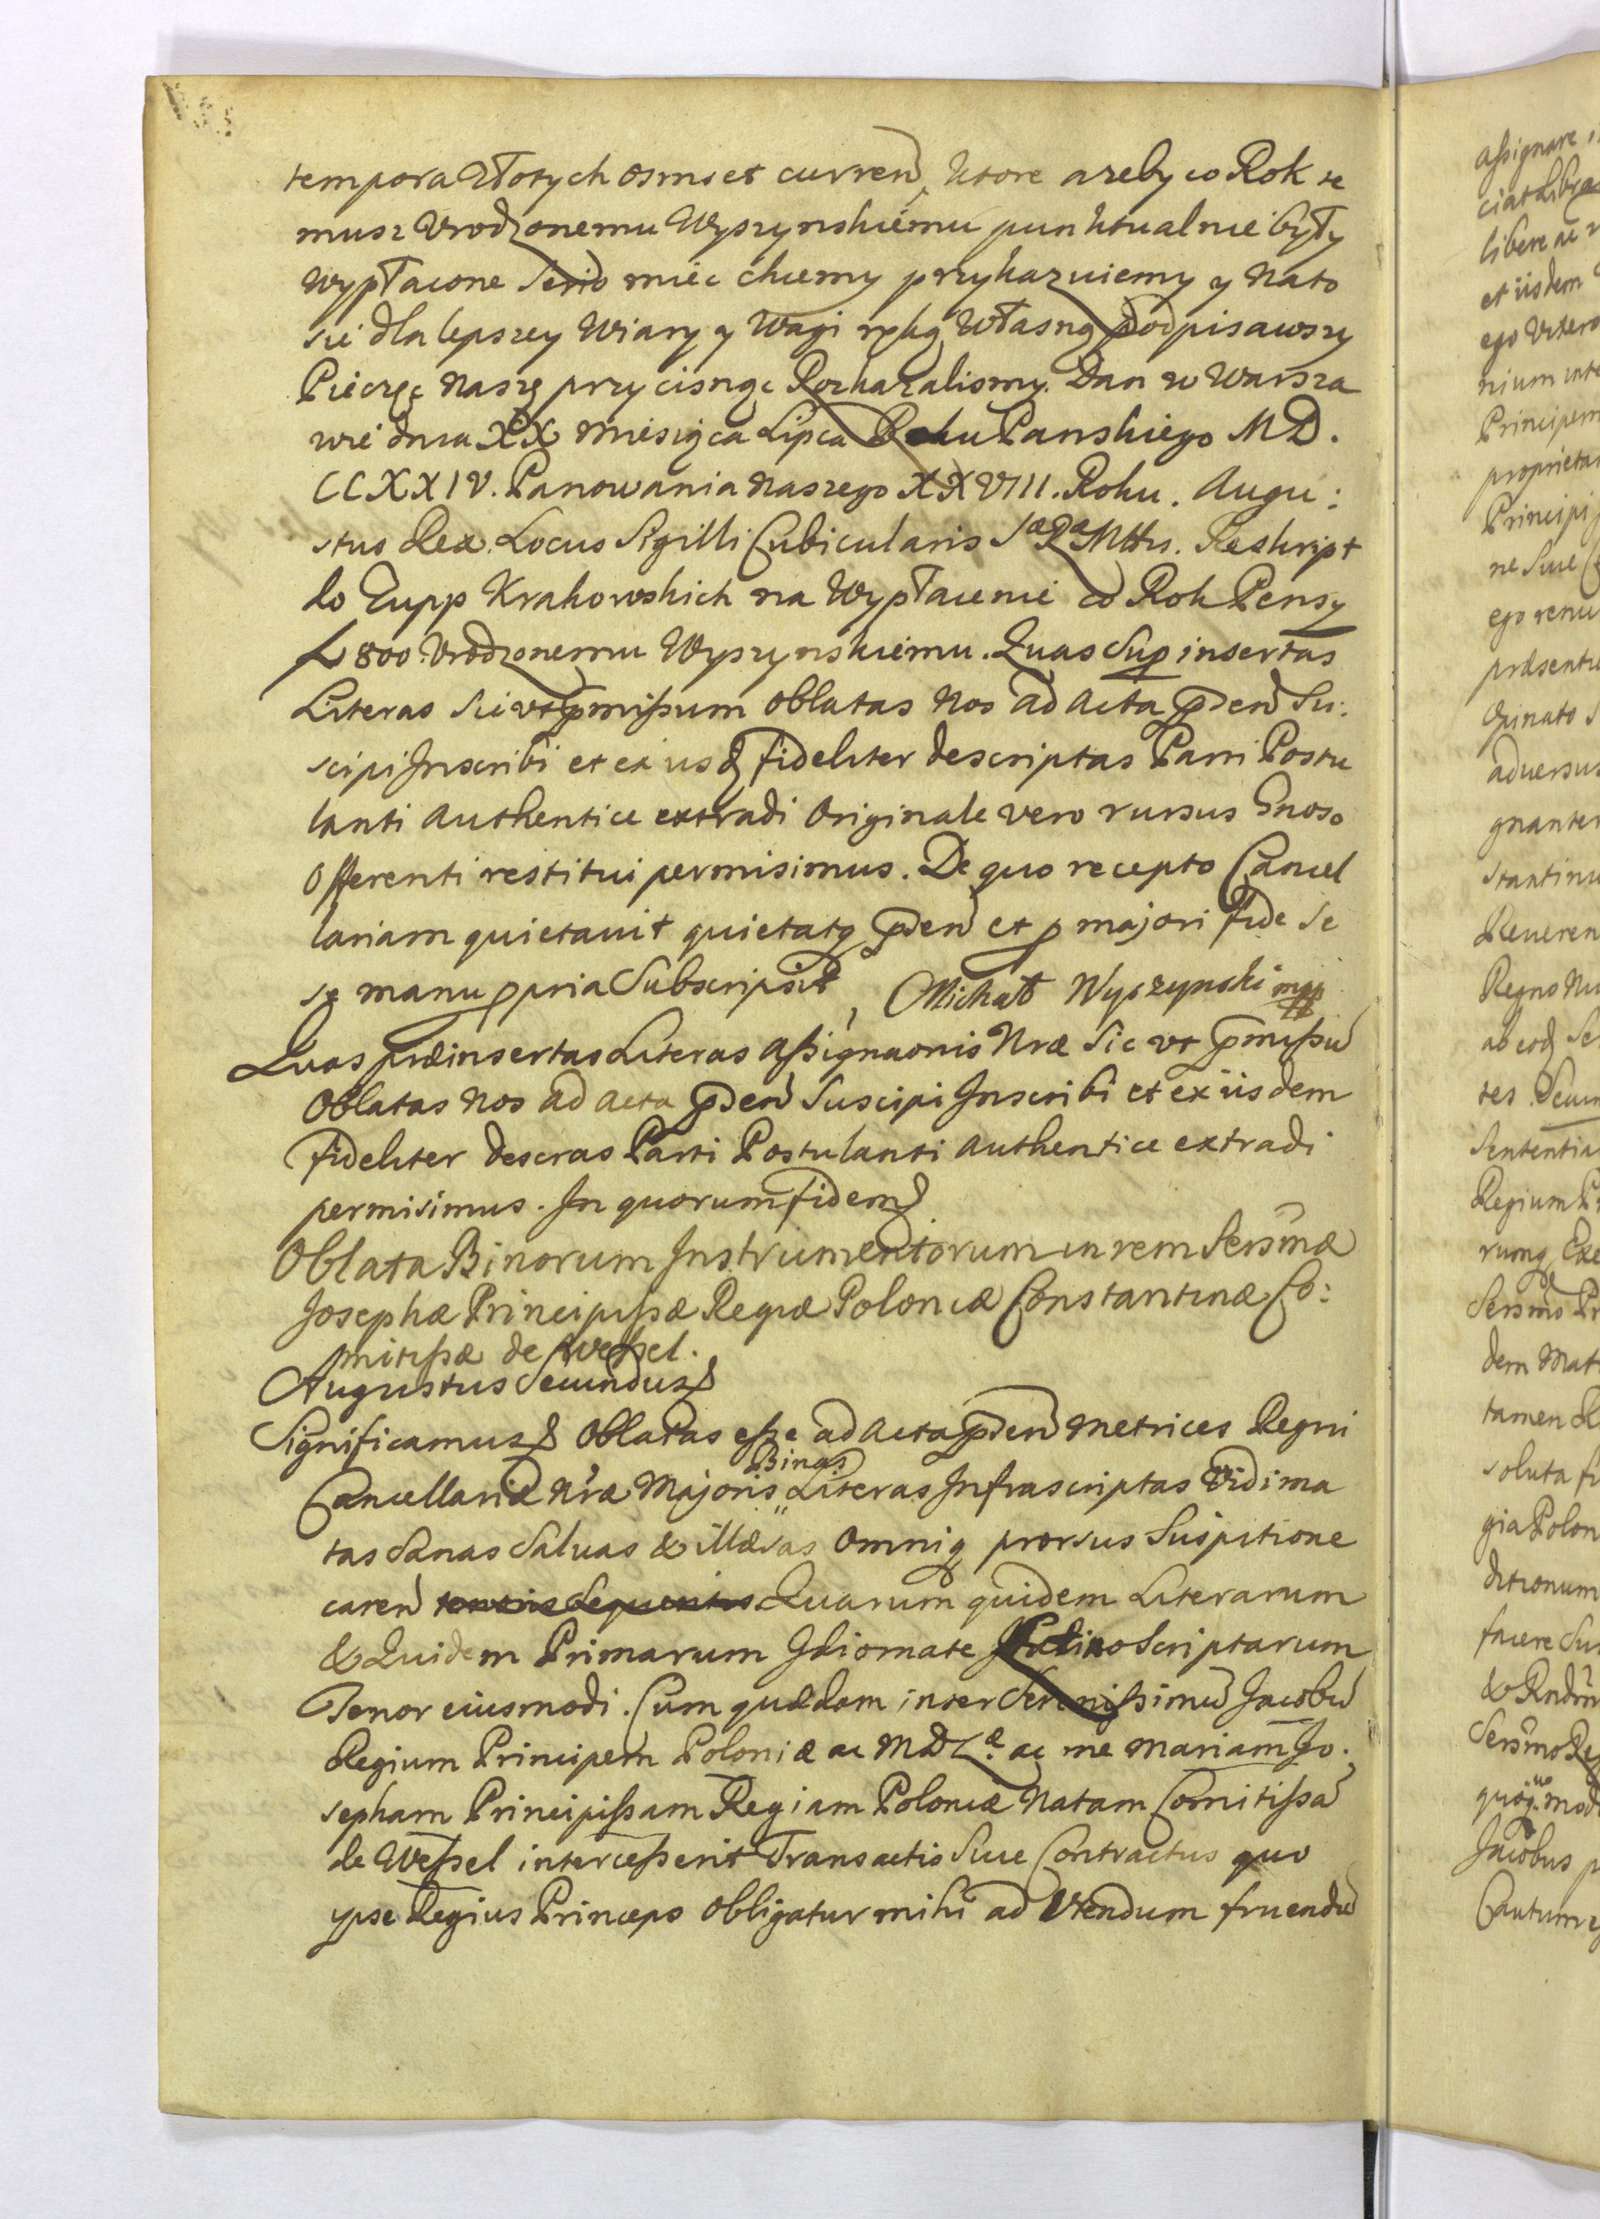 tempora Złotych osmset curren, ktore azeby co Rok te
musz Vrodzonemu Wyszynskiemu punktualnie były
wypłacone Serio miec chcemy przykazuiemy y Nato
sie dla lepszey Wiary y Wagi ręką Własną podpisawszy
Pieczęc Naszę przycisnąc Rozkazalismy. Dan w Warsza
wie dnia XX Miesiąca Lipca Roku Panskiego MD.
CCXXIV. Panowania Naszego XXVIII. Roku. Augu:
stus Rex. Locus Sigilli Cubicularis Sæ Ræ Mttis. Reskript
do Zupp Krakowskich na Wypłacenie co Rok Pensy
fl 800. Vrodzonemu Wyszynskiemu. Quas Sup insertas
Literas Sic vt pmissum oblatas Nos ad Acta pden Su:
scipi Inscribi et ex iisd fideliter descriptas Parti Postu
lanti Authentice extradi Originale vero rursus Gnoso
Offerenti restitui permisimus. De quo recepto Cancel
lariam quietavit quietatq pden et p majori fide Se
se manu ppria Subscripsit, Michał Wyszynski mpp
Quas præinsertas Literas Assignaonis Nræ Sic vt pmissu
Oblatas Nos ad Acta pden Suscipi Inscribi et ex iisdem
fideliter descras Parti Postulanti Authentice extradi
permisimus. In quorum fidem
Oblata Binorum Instrumentorum in rem Sersmæ
Josephæ Principissæ Regiæ Poloniæ Constantinæ Co:
mitissæ de Wessel.
Augustus Secundus
Significamus Oblatas esse ad Acta pden Metrices Regni
Cancellariæ Nræ Majoris Binas Literas Infrascriptas Vidima
tas Sanas Salvas & illæsas Omniq prorsus Suspitione
caren tenoris Sequentis Quarum quidem Literarum
& Quidem Primarum Idiomate Scriptarum
Tenor eiusmodi. Cum quædam inter Serenissimu Jacobu
Regium Principem Poloniæ ac MDLæ. ac me Mariam Jo:
sepham Principissam Regiam Poloniæ Natam Comitissa
de Wessel intercesserit Transactio Siue Contractus quo
ipse Regius Princeps Obligatur mihi ad Vtendum fruendu